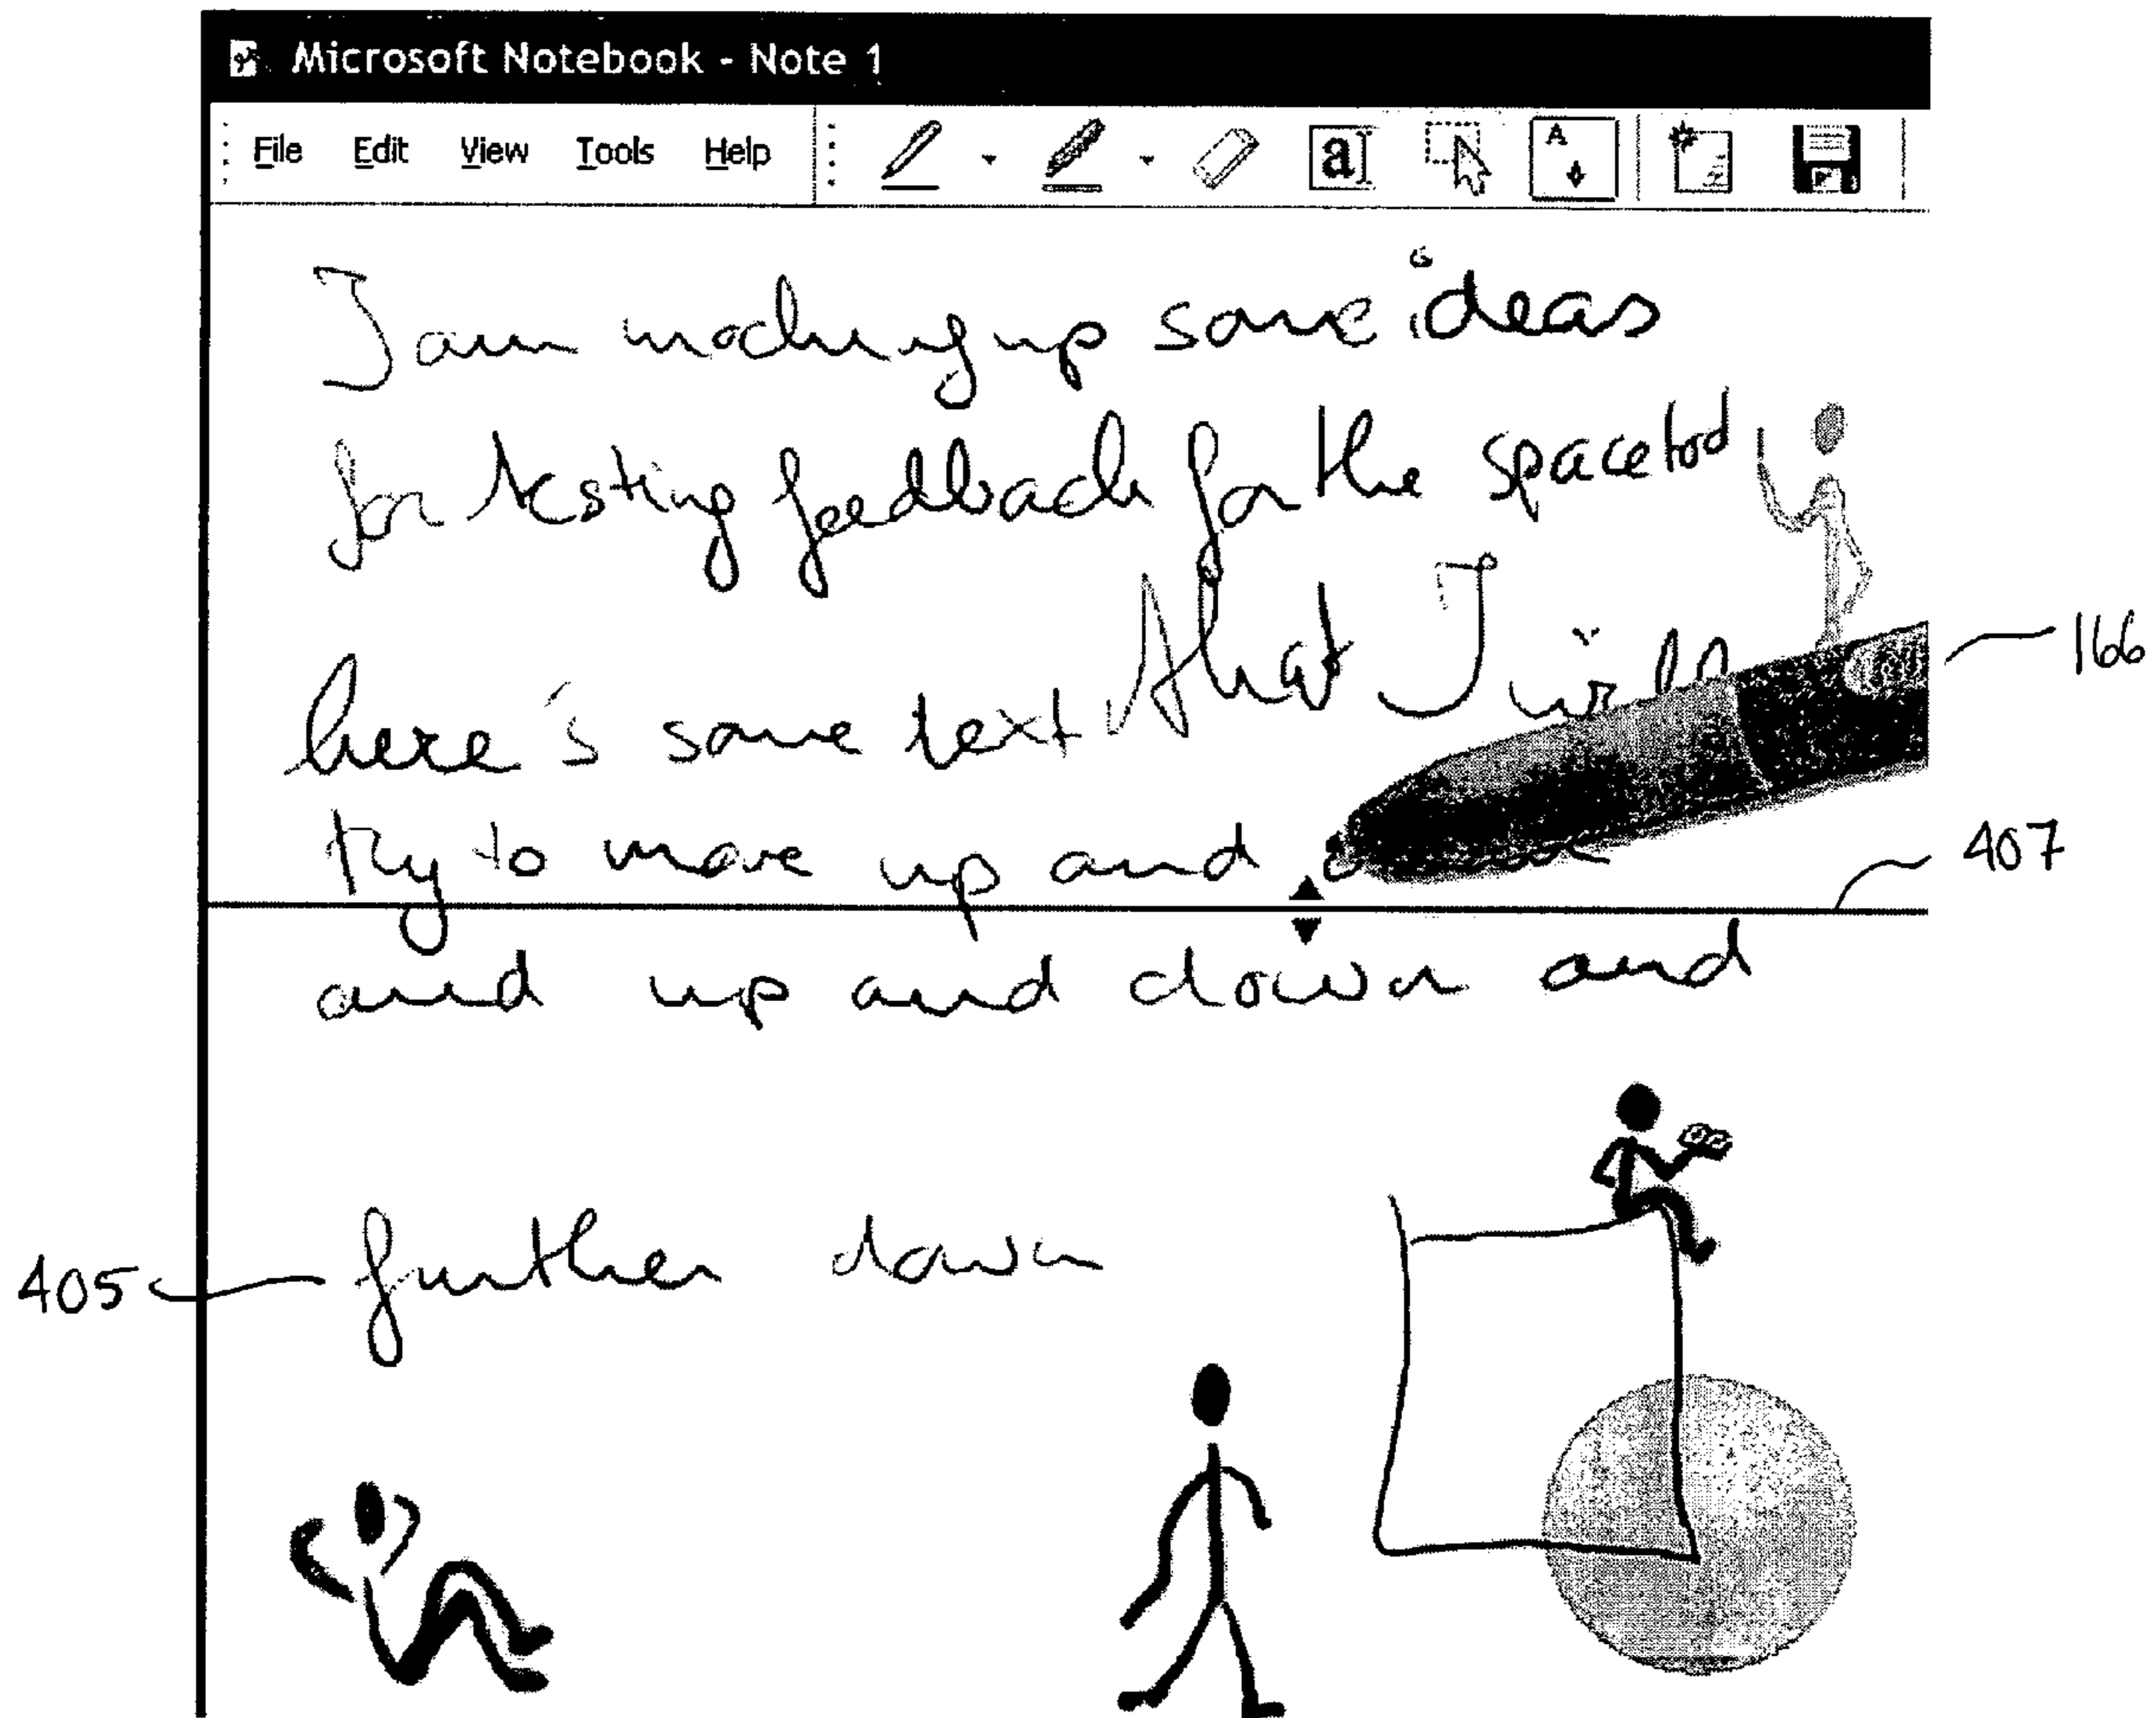 Microsoft Notebook - Note 1
File Edit View Tools Help a A
I am mocking up some ideas
for testing feedback for the spacetool
here's some text that I will
166
try to move up and
407
and up and down and
further down
405